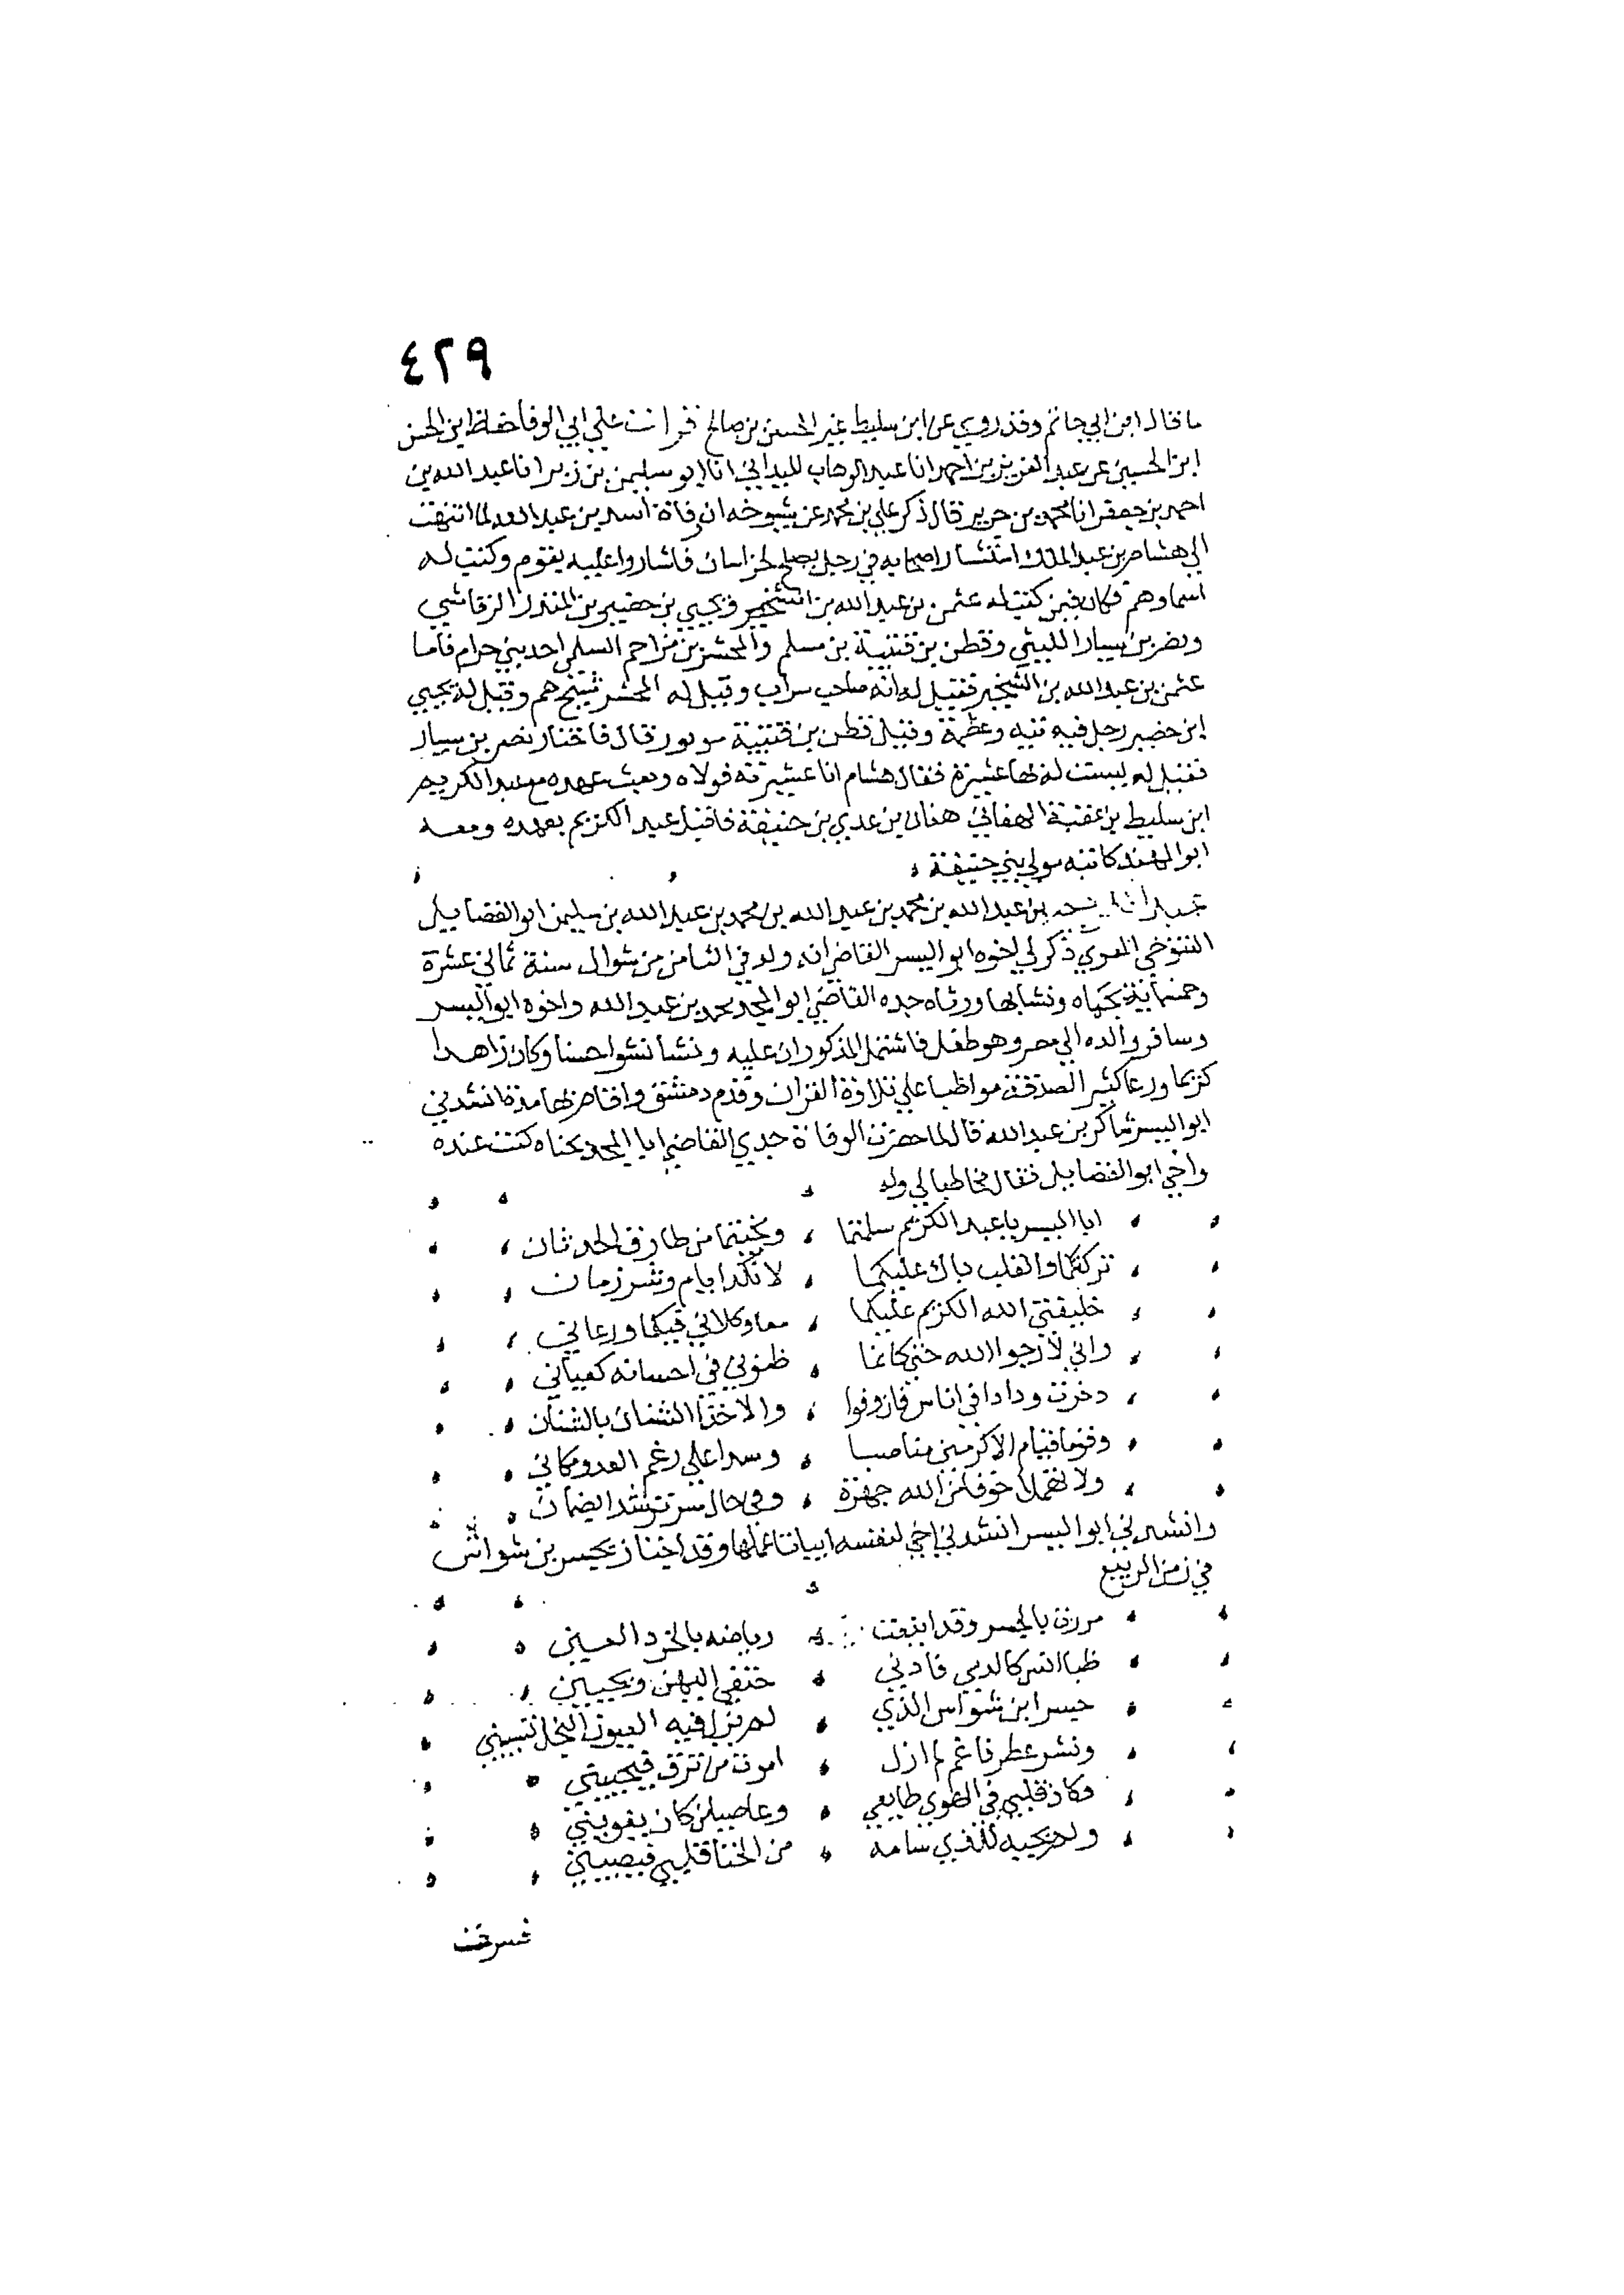 ٤٢٩
ما قال ابن ابي حاتم وقد روي عن ابن سليط غير الحسن بن صالح قرات علي ابي الوفا حفاظ ابن الحسن
ابن الحسين عن عبد العزيز بن احمد انا عبد الوهاب الميداني انا ابو سليمن بن زبر انا عبد الله بن
احمد بن جعفر انا محمد بن جرير قال ذكر علي بن محمد عن شيوخه ان وفاة اسد بن عبد الله لما انتهت
الي هشام بن عبد الملك استشار اصحابه في رجل يصلح لخراسان فاشاروا عليه بقوم وكتب له
اسماوهم فكان فيمن كتب له عثمن بن عبد الله بن الشخير ويحيي بن حضير بن المنذر الرقاشي
ونصر بن سيار الليثي وقطن بن قتيبة بن مسلم والمجشر بن مزاحم السلمي احد بني حرام فاما
عثمن بن عبد الله بن الشخير فقيل له انه صاحب شراب وقيل له المجشر شيخ هم وقيل له يحيي
ابن حضير رجل فيه تيه وعظمة وقيل قطن بن قتيبة موتور قال فاختار نصر بن سيار
فقيل له ليست له بها عشيرة فقال هشام انا عشيرته فولاه وبعث عهده مع عبد الكريم
ابن سليط بن عقبة الهفاني هفان بن عدي بن حنيفة فاقبل عبد الكريم بعهده ومعه
ابو المهند كاتبه مولي بني حنيفة
بن عبد الله بن محمد بن عبد الله بن محمد بن عبد الله بن سليمن ابو الفضايل
التنوخي المعري ذكر لي اخوه ابو اليسر القاضي انه ولد في الثامن من شوال سنة ثماني عشرة
وخمسماية بحماه ونشا بها ورباه جده القاضي ابو المجد محمد بن عبد الله واخوه ابو اليسر
وسافر والده الي مصر وهو طفل فاشتمل المذكوران عليه ونشا نشوا حسنا وكان زاهدا
كريما ورعا كثير الصدقة مواظبا علي تلاوة القران وقدم دمشق واقام بها مدة انشدني
ابو اليسر شاكر بن عبد الله قال لما حضرت الوفاة جدي القاضي ابا المجد بحماه كنت عنده
واخي ابو الفضايل فقال مخاطبا لي وله
ابا اليسر يا عبد الكريم سلمتما ونجيتما من طارق الحدثان
تركتكما والقلب باك عليكما لانكد ايام وشر زمان
خليفتي الله الكريم عليكما معا وكلاني فيكما ورعاني
واني لارجو الله حتي كانما ظنوني في احسانه كعياني
دخرت ودادا في اناس فما وفوا
وقوما قيام الاكرمين مناصبا وسدا علي رغم العدو مكاني
ولا تهملا خوفا من الله جهرة وفي حال سر
وانشدني ابو اليسر انشدني اخي لنفسه ابياتا عملها وقد اجتاز بجسر بن شواش
في زمن الربيع
مررت بالجسر وقد اينعت رياضه بالخرد العين
ظبا انس كالدمي قادني حتفي اليهن وتحييني
جسر ابن شواش الذي لم يزل فيه العيون النجل تسبيني
ونشر عطر ناغم لم ازل اموت من شوق فيحييني
وكان قلبي في الهوي طايعي وعاصيا من كان يغويني
ولم يجبه للذي سامه من الخنا قلبي فيصبيني
فسرت